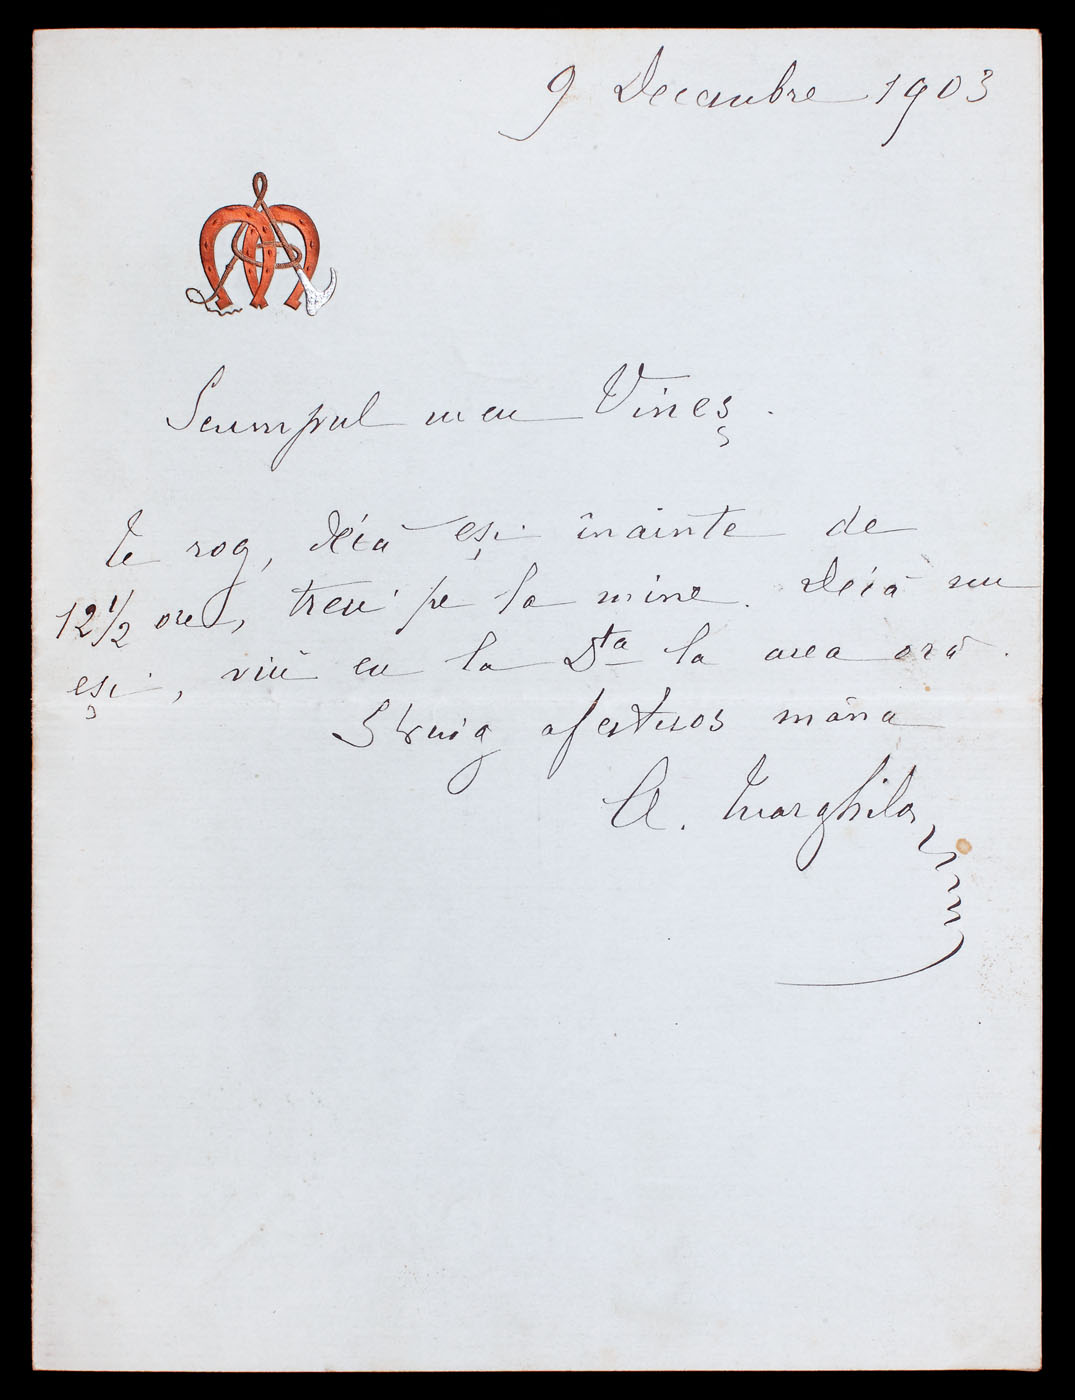 9 Decembre 1903
Scumpul meu Vineș.
te rog, déca eși înainte de
12 1/2 ore, treci pe la mine. Déca nu
eși, viu eu la D-ta la acea oră.
Strâng afectuos mâna
A. Marghiloman